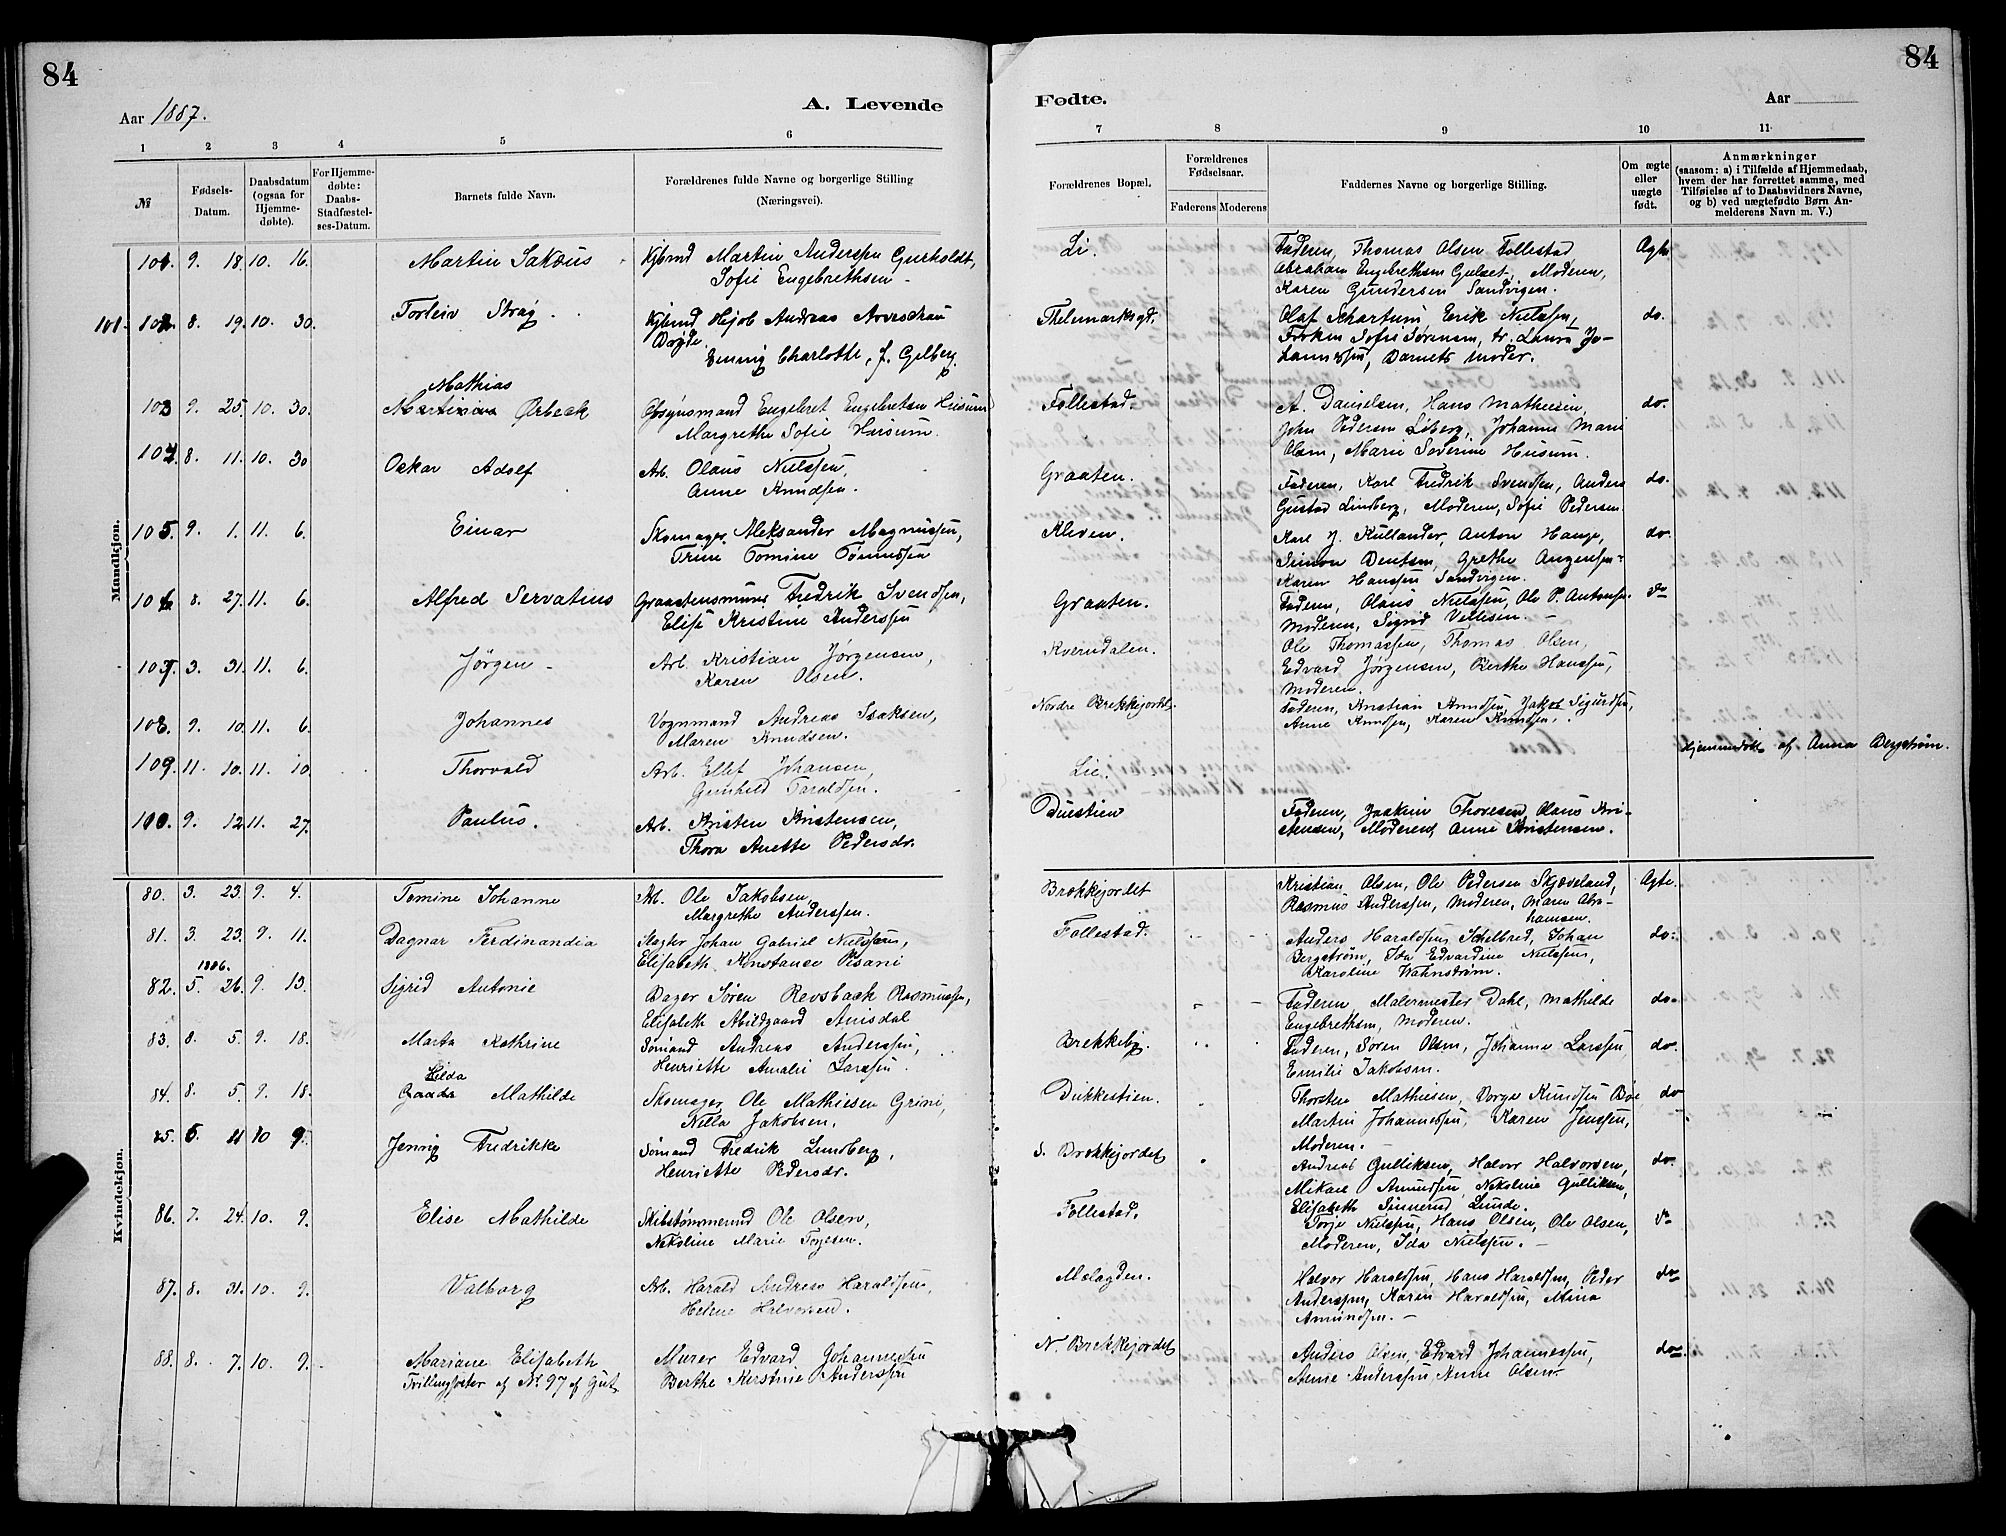 84
84
Aar 1887.
A. Levende
Fødte.
Aar
1 2 3 4 5 6 7 8 9 10 11
№
Fødsels-Datum.
Daabsdatum (ogsaa for Hjemme-døbte).
For Hjemme-døbte: Daabs-Stadfæstel-ses-Datum.
Barnets fulde Navn.
Forældrenes fulde Navne og borgerlige Stilling (Næringsvei).
Forældrenes Bopæl.
Forældrenes Fødselsaar.
Faderens Moderens
Faddernes Navne og borgerlige Stilling.
Om ægte eller uægte født.
Anmærkninger
(saasom: a) i Tilfælde af Hjemmedaab,
hvem der har forrettet samme, med
Tilføielse af to Daabsvidners Navne,
og b) ved uægtefødte Børn An-
melderens Navn m. V.)
Mandkjøn.
101. 9. 18. 10. 16. Martin Martin Anderssen Gurholdt, Li. Faderen, Thomas Olsen Follestad, Ægte
Sofie Engebrethsen Abraham Engebrethsen Gulset, Moderen,
Karen Gundersen Sandvigen.
101. 102. 8. 19. 10. 30. Torleiv Andreas Thelemarksgd. Olaf Schartum, Erik Nielssen, do.
Frøken Sofie Sørensen, Laura Jo-
Charlotte, f. Gelberg. hannessen, Barnets Moder.
Mathias
103 9. 25. 10. 30. Martinius Ørbeck Opsynsmand Engebret Engebretsen Husum Follestad. A. Danielsen, Hans Mathiesen, do.
Margrethe Sofie Husum. John Pedersen Liberg, Johanne Marie
Olsen, Marie Severine Husum.
104. 8. 11. 10. 30 Oskar Adolf Arb. Olaus Nielssen, Graaten. Faderen, Karl Fredrik Svendsen, Anders do.
Anne Knudsen. Gustav Lindberg, Moderen, Sofie Pedersen.
105. 9. 1. 11. 6. Einar Skomager Aleksander Magnussen, Kleven. Karl J. Kullander, Anton Hauge, do.
Trine Tomine Tønnessen Simon Bentsen, Grethe
Karen Hanssen Sandvigen.
106 8. 27. 11. 6. Alfred Servatius Fredrik Svendsen, Graaten. Faderen, Olaus Nielssen, Ole P. Antonsen. do
Elise Kristine Anderssen Moderen, Sigrid Villesen.
107. 3. 31. 11. 6. Jørgen Arb. Kristian Jørgensen, Kverndalen. Ole Thomassen, Thomas Olsen,
Karen Olsen. Edvard Jørgensen, Berthe Hanssen,
Moderen.
108. 9. 10. 11. 6. Johannes Vognmand Andreas Isaksen, Nordre Brekkejordet. Faderen, Kristian Knudsen, Jakob Sigurdsen,
Maren Knudsen. Anne Knudsen, Karen Knudsen.
109. 11. 10. 11. 10. Thorvald Arb. Ellef Johansen, Lie. Hjemmedøbt af Anna Bergstrøm.
Gunhild Taraldsen.
110. 9. 12. 11. 27. Paulus. Arb. Kristen Kristensen, Duestien Faderen, Joakim Thoresen, Olaus Kri-
Thora Anette Pedersdr. stensen, Moderen, Anne Kristensen.
Kvindekjøn.
80. 3. 23. 9. 4. Tomine Johanne Arb. Ole Jakobsen, Brekkejordet Kristian Olsen, Ole Pedersen Skjæveland, Ægte.
Margrethe Anderssen. Rasmus Anderssen, Moderen, Maren Abra-
hamsen.
81. 3. 23. 9. 11. Dagnar Ferdinandia Slagter Johan Gabriel Nielssen, Follestad. Anders Haraldsen Schelbred, Johan do.
Elisabeth Konstance Pisani Bergstrøm, Ida Edvardine Nielssen,
Karoline Wahnstrøm.
1886.
82. 5. 26. 9. 13. Sigrid Antonie Bager Søren Revsbeck Rasmussen, Faderen, Malermester Dahl, Mathilde do.
Elisabeth Abildgaard Anisdal Engebrethsen, Moderen.
83. 8. 5. 9. 18. Marta Kathrine Sømand Andreas Anderssen, Brekkeby. Faderen, Søren Olsen, Johanne Larssen, do.
Henriette Amalie Larssen. Emilie Jakobsen.
Hilda
84. 8. 5. 9. 18. Mathilde Skomager Ole Mathiesen Grini, Dukkestien. Thorsten Mathiesen, Børge Knudsen Bøe do
Nilla Jakobsen. Martin Johannessen, Karen Jenssen,
Moderen.
85. 5. 21 10 9. Jenny Fredrikke Sømand Fredrik Lundberg, S. Brekkejordet Andreas Gulliksen, Halvor Halvorsen, do.
Henriette Pedersdr. Mikael Amundsen, Nekoline Gulliksen,
Elisabeth Lunde.
86. 7. 24. 10. 9. Elise Mathilde Skibstømmermd Ole Olsen, Follestad. Torje Nielssen, Hans Olsen, Ole Olsen, do
Nekoline Marie Torjesen. Moderen, Ida Nielssen.
87. 8. 31. 10. 9. Valborg Arb. Harald Andreas Haraldsen, Mælagden. Halvor Haraldsen, Hans Haraldsen, Peder do
Helene Halvorsen. Anderssen, Karen Haraldsen, Mina
Amundsen.
88. 8. 7. 10. 9. Mariane Elisabeth Murer Edvard Johannessen N. Brekkejordet Anders Olsen, Edvard Johannessen, do
Tvillingsøster af No. 97 af Gut. Berthe Kirstine Anderssen Anne Anderssen, Anne Olsen.